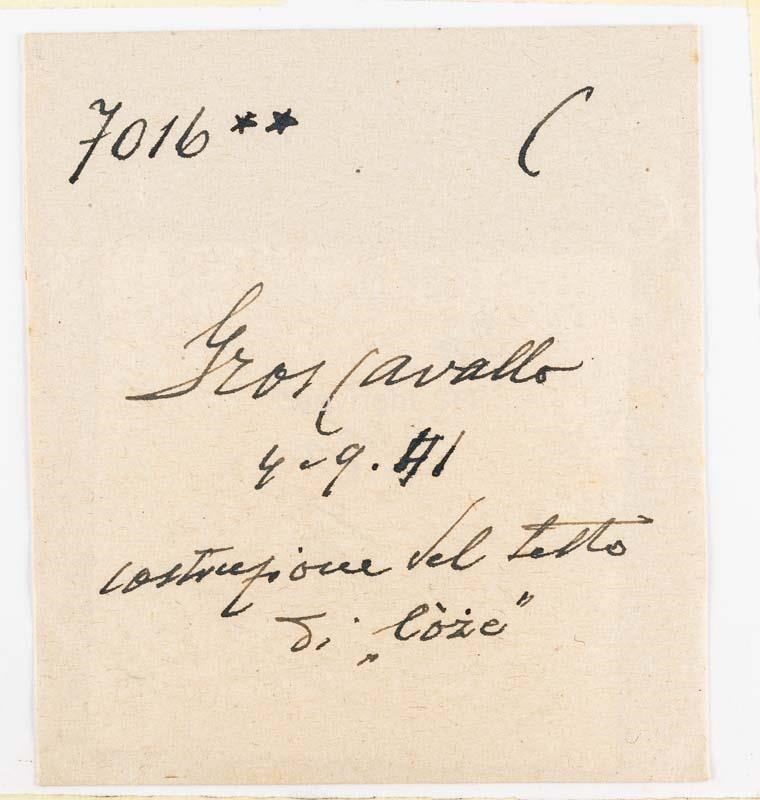 7016 ** C
GrosCavallo
4-9.41
costruzione del tetto
di „lòże"